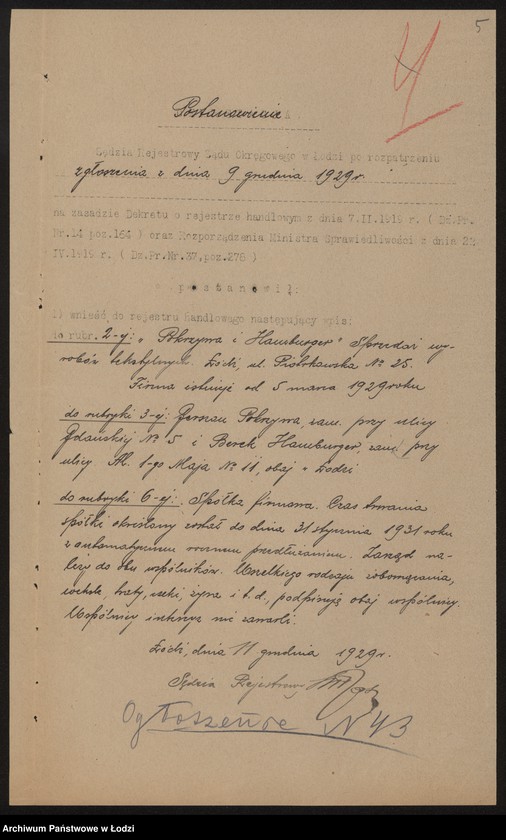 5
Postanowienie
Sędzia Rejestrowy Sądu Okręgowego w Łodzi po rozpatrzeniu
zgłoszenia z dnia 9 grudnia 1929 r.
na zasadzie Dekretu o rejestrze handlowym z dnia 7.II.1919 r. ( Dz.Pr.
Nr.14 poz.164 ) oraz Rozporządzenia Ministra Sprawiedliwości z dnia
IV.1919 r. ( Dz.Pr.Nr.37,poz.276 )
p o s t a n o w i ł :
1) wnieść do rejestru handlowego następujący wpis:
do rubr. 2-ej: „Pokrzywa i Hamburger" Sprzedaż wy-
robów tekstylnych. Łódź, ul. Piotrkowska № 25.
Firma istnieje od 5 marca 1929 roku
do rubryki 3-ej: Pokrzywa, zam. przy ulicy
Gdańskiej № 5 i Berek Hamburger, zam. przy
ulicy Al. 1-go Maja № 11, obaj w Łodzi
do rubryki 6-ej: Spółka firmowa. Czas trwania
spółki określony został do dnia 31 stycznia 1931 roku
z automatycznem rocznem przedłużaniem. Zarząd na-
leży do obu wspólników. Wszelkiego rodzaju zobowiązania,
weksle, czeki, żyra i t.d., podpisują obaj wspólnicy.
Wspólnicy intercyz nie zawarli.
Łódź, dnia 11 grudnia 1929 r.
Sędzia Rejestrowy
Ogłoszenie N 43
Archiwum Państwowe w Łodzi